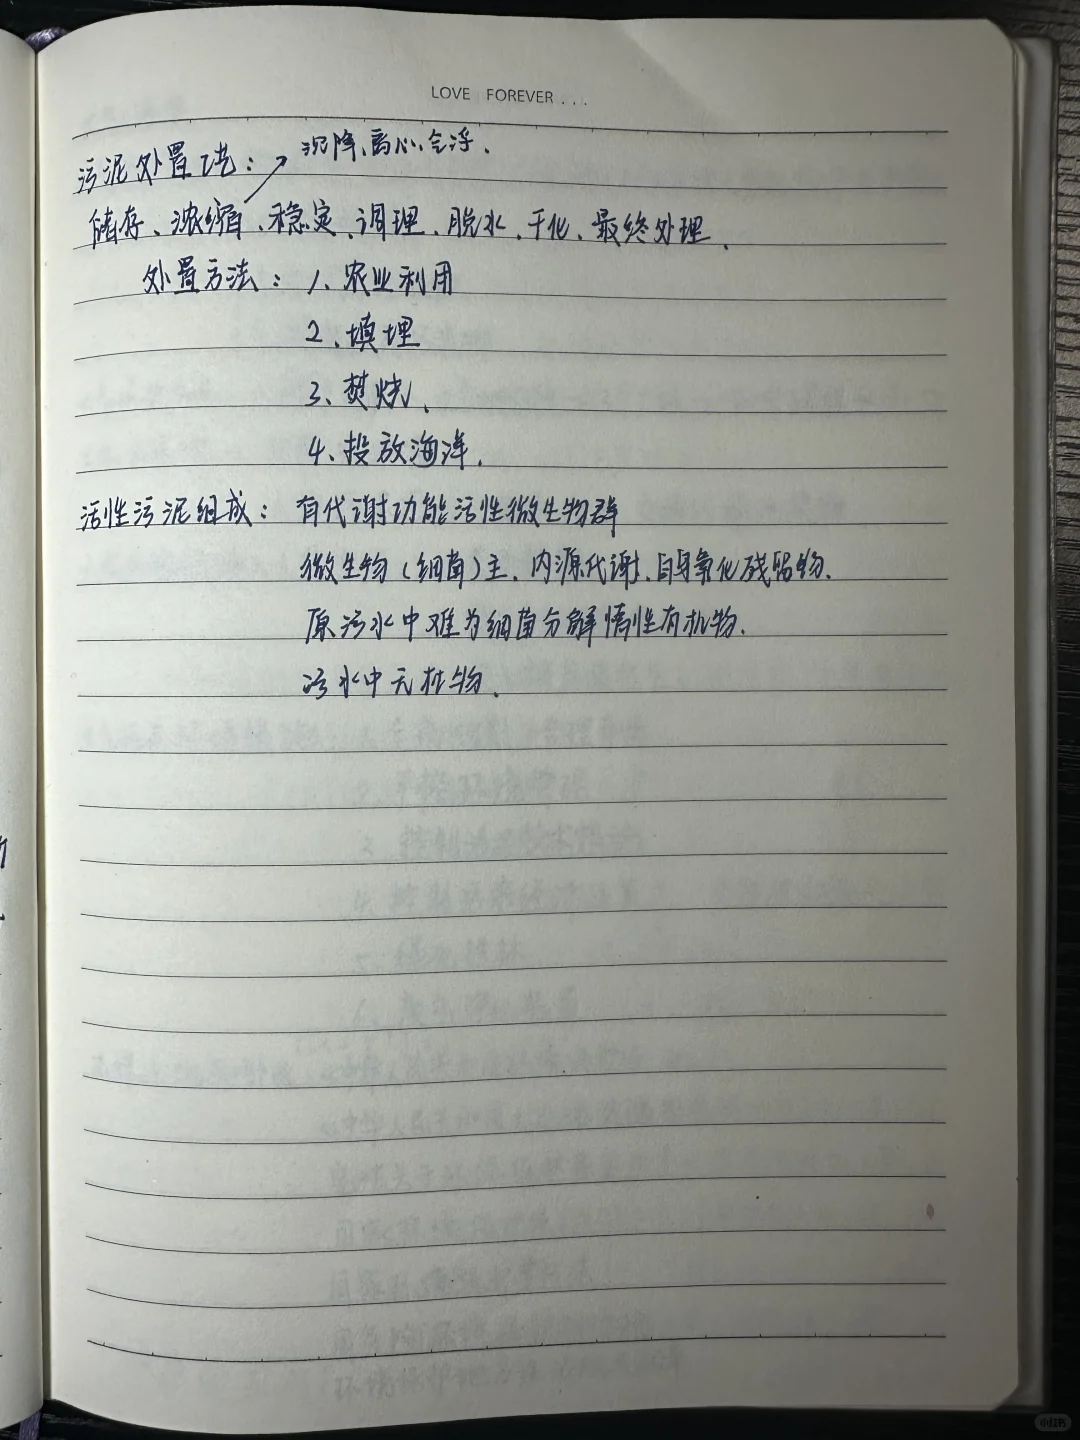 LOVE FOREVER . . .
沉降、离心、气浮.
污泥处置工艺：
储存、浓缩、稳定、调理、脱水、干化、最终处理.
处置方法：1、农业利用
2、填埋
3、焚烧、
4、投放海洋.
活性污泥组成：有代谢功能活性微生物群
微生物（细菌）主、内源代谢、自身氧化残留物.
原污水中难为细菌分解惰性有机物.
污水中无机物.
小红书